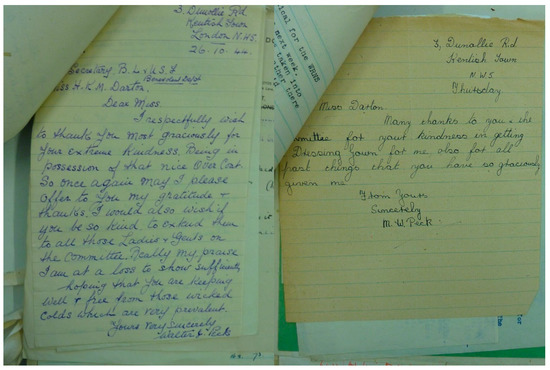 3, Dunollie Rd
Kentish Town
London N.W.5.
26.10.44.
Secretary, B. L & U.S.F
Benevolent Dept
Miss H. K. M. Darton.
Dear Miss.
I respectfully wish
to thank you most graciously for
your extreme kindness. Being in
possession of that nice Over Coat.
So once again may I please
offer to you my gratitude &
thanks. I would also wish if
you be so kind to extend them
to all those Ladies & Gents on
the Committee. Really my praise
I am at a loss to show sufficiently
hoping that you are keeping
well & free from those wicked
colds which are very prevalent.
Yours Very Sincerely
Walter J. Peck
ical for the WRNS
next week.
taken into
ther there
3, Dunollie Rd
Kentish Town
N.W.5
Thursday
Miss Darton.
Many thanks to you & the
mmittee for your kindness in getting
Dressing Gown for me also for all
past things that you have so graciously
given me
From Yours
Sincerely
M. W. Peck.